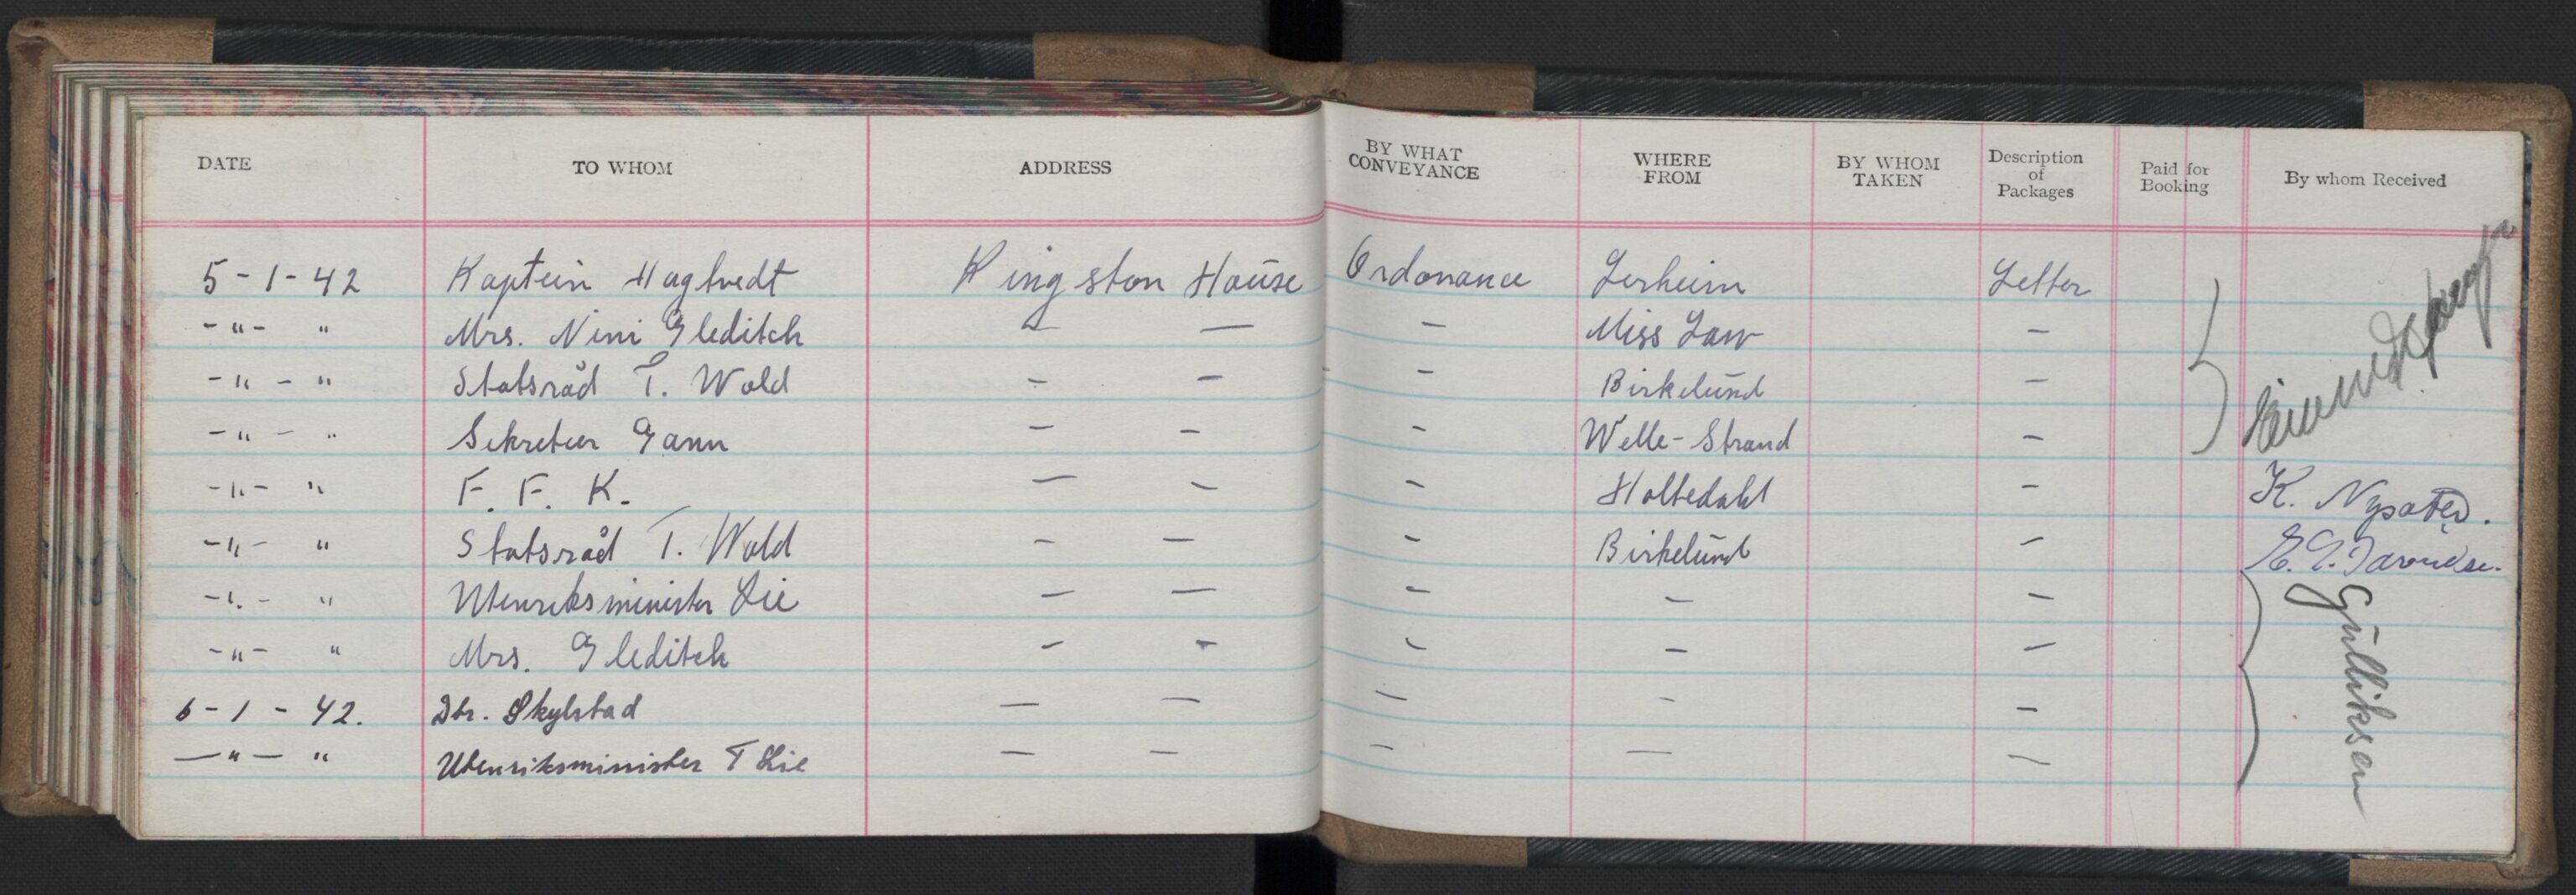 DATE TO WHOM ADDRESS BY WHAT CONVEYANCE WHERE FROM BY WHOM TAKEN Description of Packages Paid for Booking By whom Received
5-1-42 Kaptein Hagtvedt Kingston House Ordonance Lerheim Letter
-"- " Mrs. Nini Gleditch — — — Miss Law —
-"- " Statsråd T. Wold — — — Birkelund —
-"- " Sekretær Gann — — — Welle-Strand —
-"- " F. F. K. — — — Holtedahl — K.
-"- " Statsråd T. Wold — — — Birkelund —
-"- " Utenriksminister Lie — — — — —
-"- " Mrs. Gleditch — — — — — Gulliksen
6-1-42. Skylstad — — — — —
-"- " Utenriksminister T Lie — — — — —